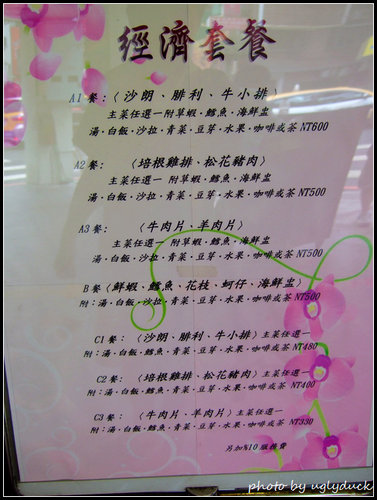 經濟套餐
A1 餐：〈沙朗、腓利、牛小排〉
主菜任選一 附草蝦．鱈魚．海鮮盅
湯．白飯．沙拉．青菜．豆芽．水果．咖啡或茶 NT600
A2 餐：〈培根雞排、松花豬肉〉
主菜任選一 附草蝦．鱈魚．海鮮盅
湯．白飯．沙拉．青菜．豆芽．水果．咖啡或茶 NT500
A3 餐：〈牛肉片、羊肉片〉
主菜任選一 附草蝦．鱈魚．海鮮盅
湯．白飯．沙拉．青菜．豆芽．水果．咖啡或茶 NT500
B餐〈鮮蝦、鱈魚、花枝、蚵仔、海鮮盅〉
附：湯．白飯．沙拉．青菜．豆芽．水果．咖啡或茶 NT500
C1 餐：〈沙朗、腓利、牛小排〉主菜任選一
附：湯．白飯．鱈魚．青菜．豆芽．水果．咖啡或茶 NT480
C2 餐：〈培根雞排、松花豬肉〉主菜任選一
附：湯．白飯．鱈魚．青菜．豆芽．水果．咖啡或茶 NT400
C3 餐：〈牛肉片、羊肉片〉主菜任選一
附：湯．白飯．鱈魚．青菜．豆芽．水果．咖啡或茶 NT330
另加%10服務費
photo by uglyduck